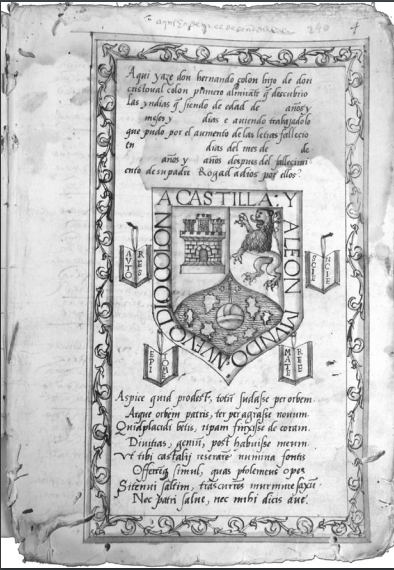 Aqui yaze don hernando colon hijo de don
cristoual colon primero almirāte q̄ descubrio
las yndias q̄ siendo de edad de años y
meses y dias e auiendo trabajado lo
que pudo por el aumento de las letras fallecio
en dias del mes de de
años y años despues del fallecimi
ento de su padre Rogad a dios por ellos
A CASTILLA: Y
A LEON MUNDO: NVEVO DIO COLON
AVTO RES
SCIE NCIE
EPI
MATE REE
Aspice quid prodest, totū sudasse per orbem.
Atque orbem patris, ter peragrasse nouum.
Quid placidi betis, ripam finxisse decoram.
Diuitias, geniū, post habuisse meum.
Vt tibi castalij reserare numina fontis
Offerreq simul, quas ptolemeus opes
Si tenui saltem, trāscurrēs murmure saxū
Nec patri salue, nec mihi dicis aue.